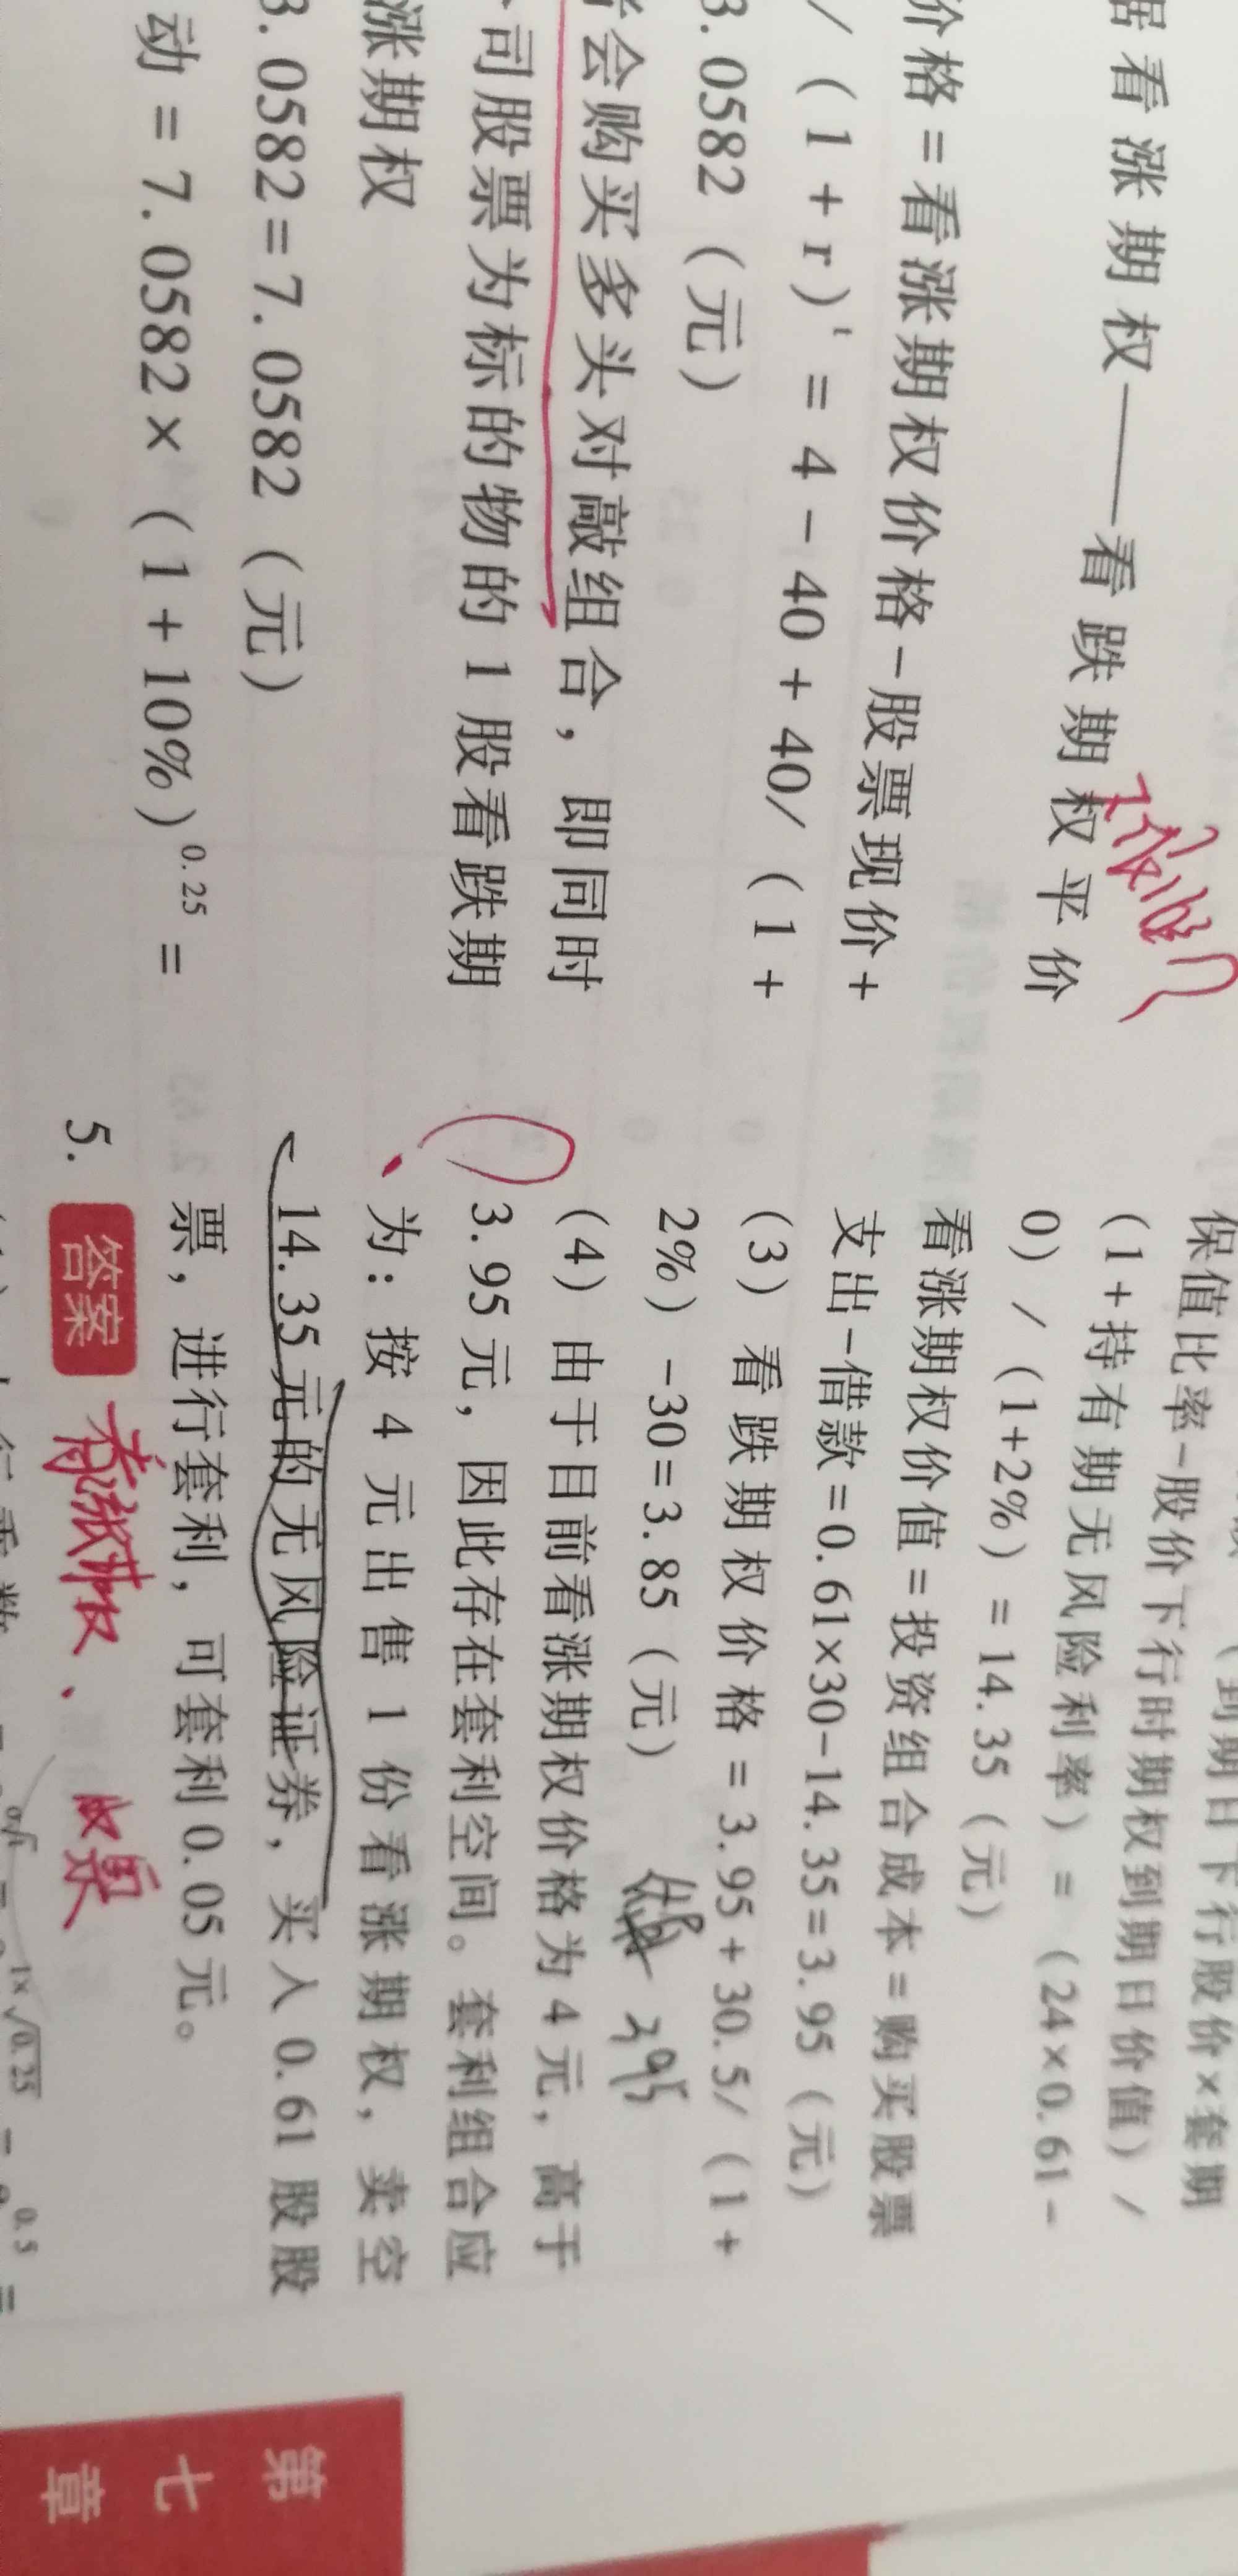 看涨期权——看跌期权平价
价格=看涨期权价格-股票现价+
/(1+r)ᵗ=4-40+40/(1+
3.0582(元)
会购买多头对敲组合，即同时
司股票为标的物的1股看跌期
涨期权
3.0582=7.0582(元)
动=7.0582×(1+10%)^0.25=
保值比率-股价下行时期权到期日价值)/
(1+持有期无风险利率)=(24×0.61-
0)/(1+2%)=14.35(元)
看涨期权价值=投资组合成本=购买股票
支出-借款=0.61×30-14.35=3.95(元)
(3)看跌期权价格=3.95+30.5/(1+
2%)-30=3.85(元)
3.95
(4)由于目前看涨期权价格为4元，高于
3.95元，因此存在套利空间。套利组合应
为：按4元出售1份看涨期权，卖空
14.35元的无风险证券，买入0.61股股
票，进行套利，可套利0.05元。
5. 答案
第七章